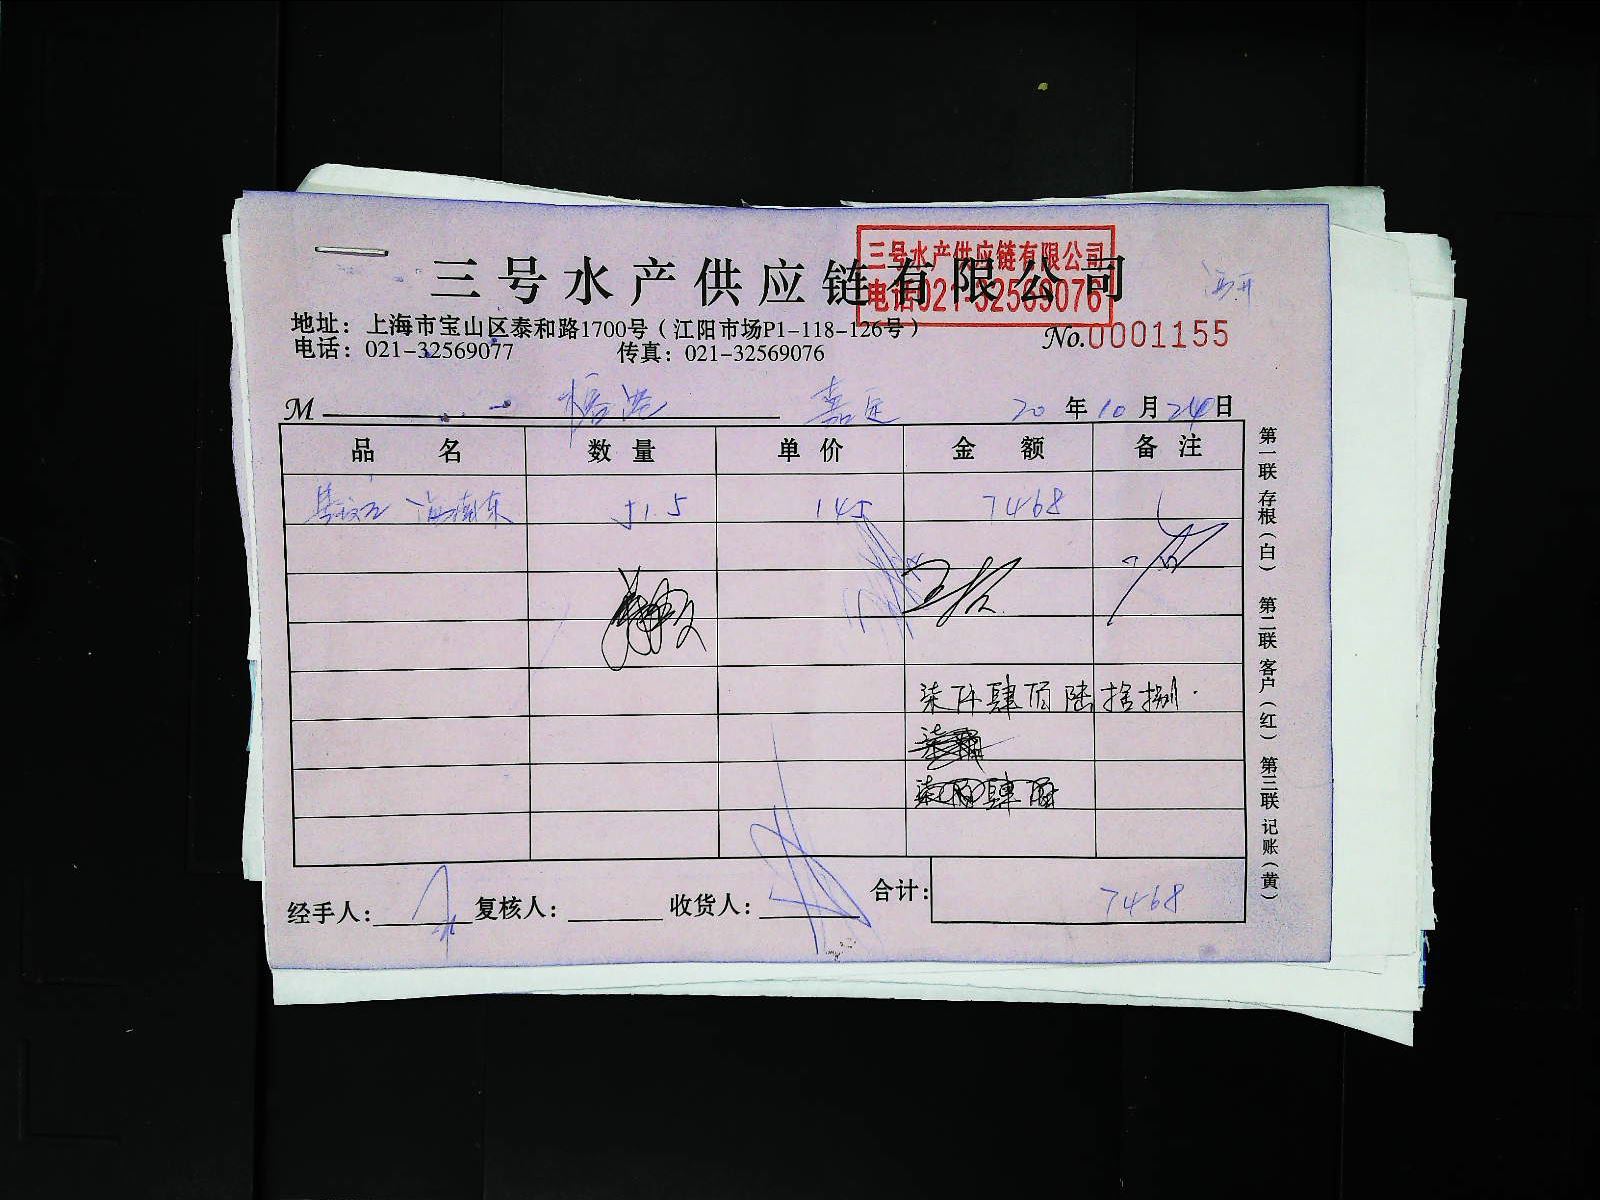 三号水产供应链有限公司
三号水产供应链有限公司
电话021-32569076
地址：上海市宝山区泰和路1700号（江阳市场P1-118-126号）
电话：021-32569077 传真：021-32569076
No.0001155
M 嘉定 20年10月24日
品 名 数 量 单 价 金 额 备 注
海南东 51.5 145 7468
柒仟肆佰陆拾捌.
肆佰
经手人： 复核人： 收货人： 合计： 7468
第一联 存根（白） 第二联 客户（红） 第三联 记账（黄）